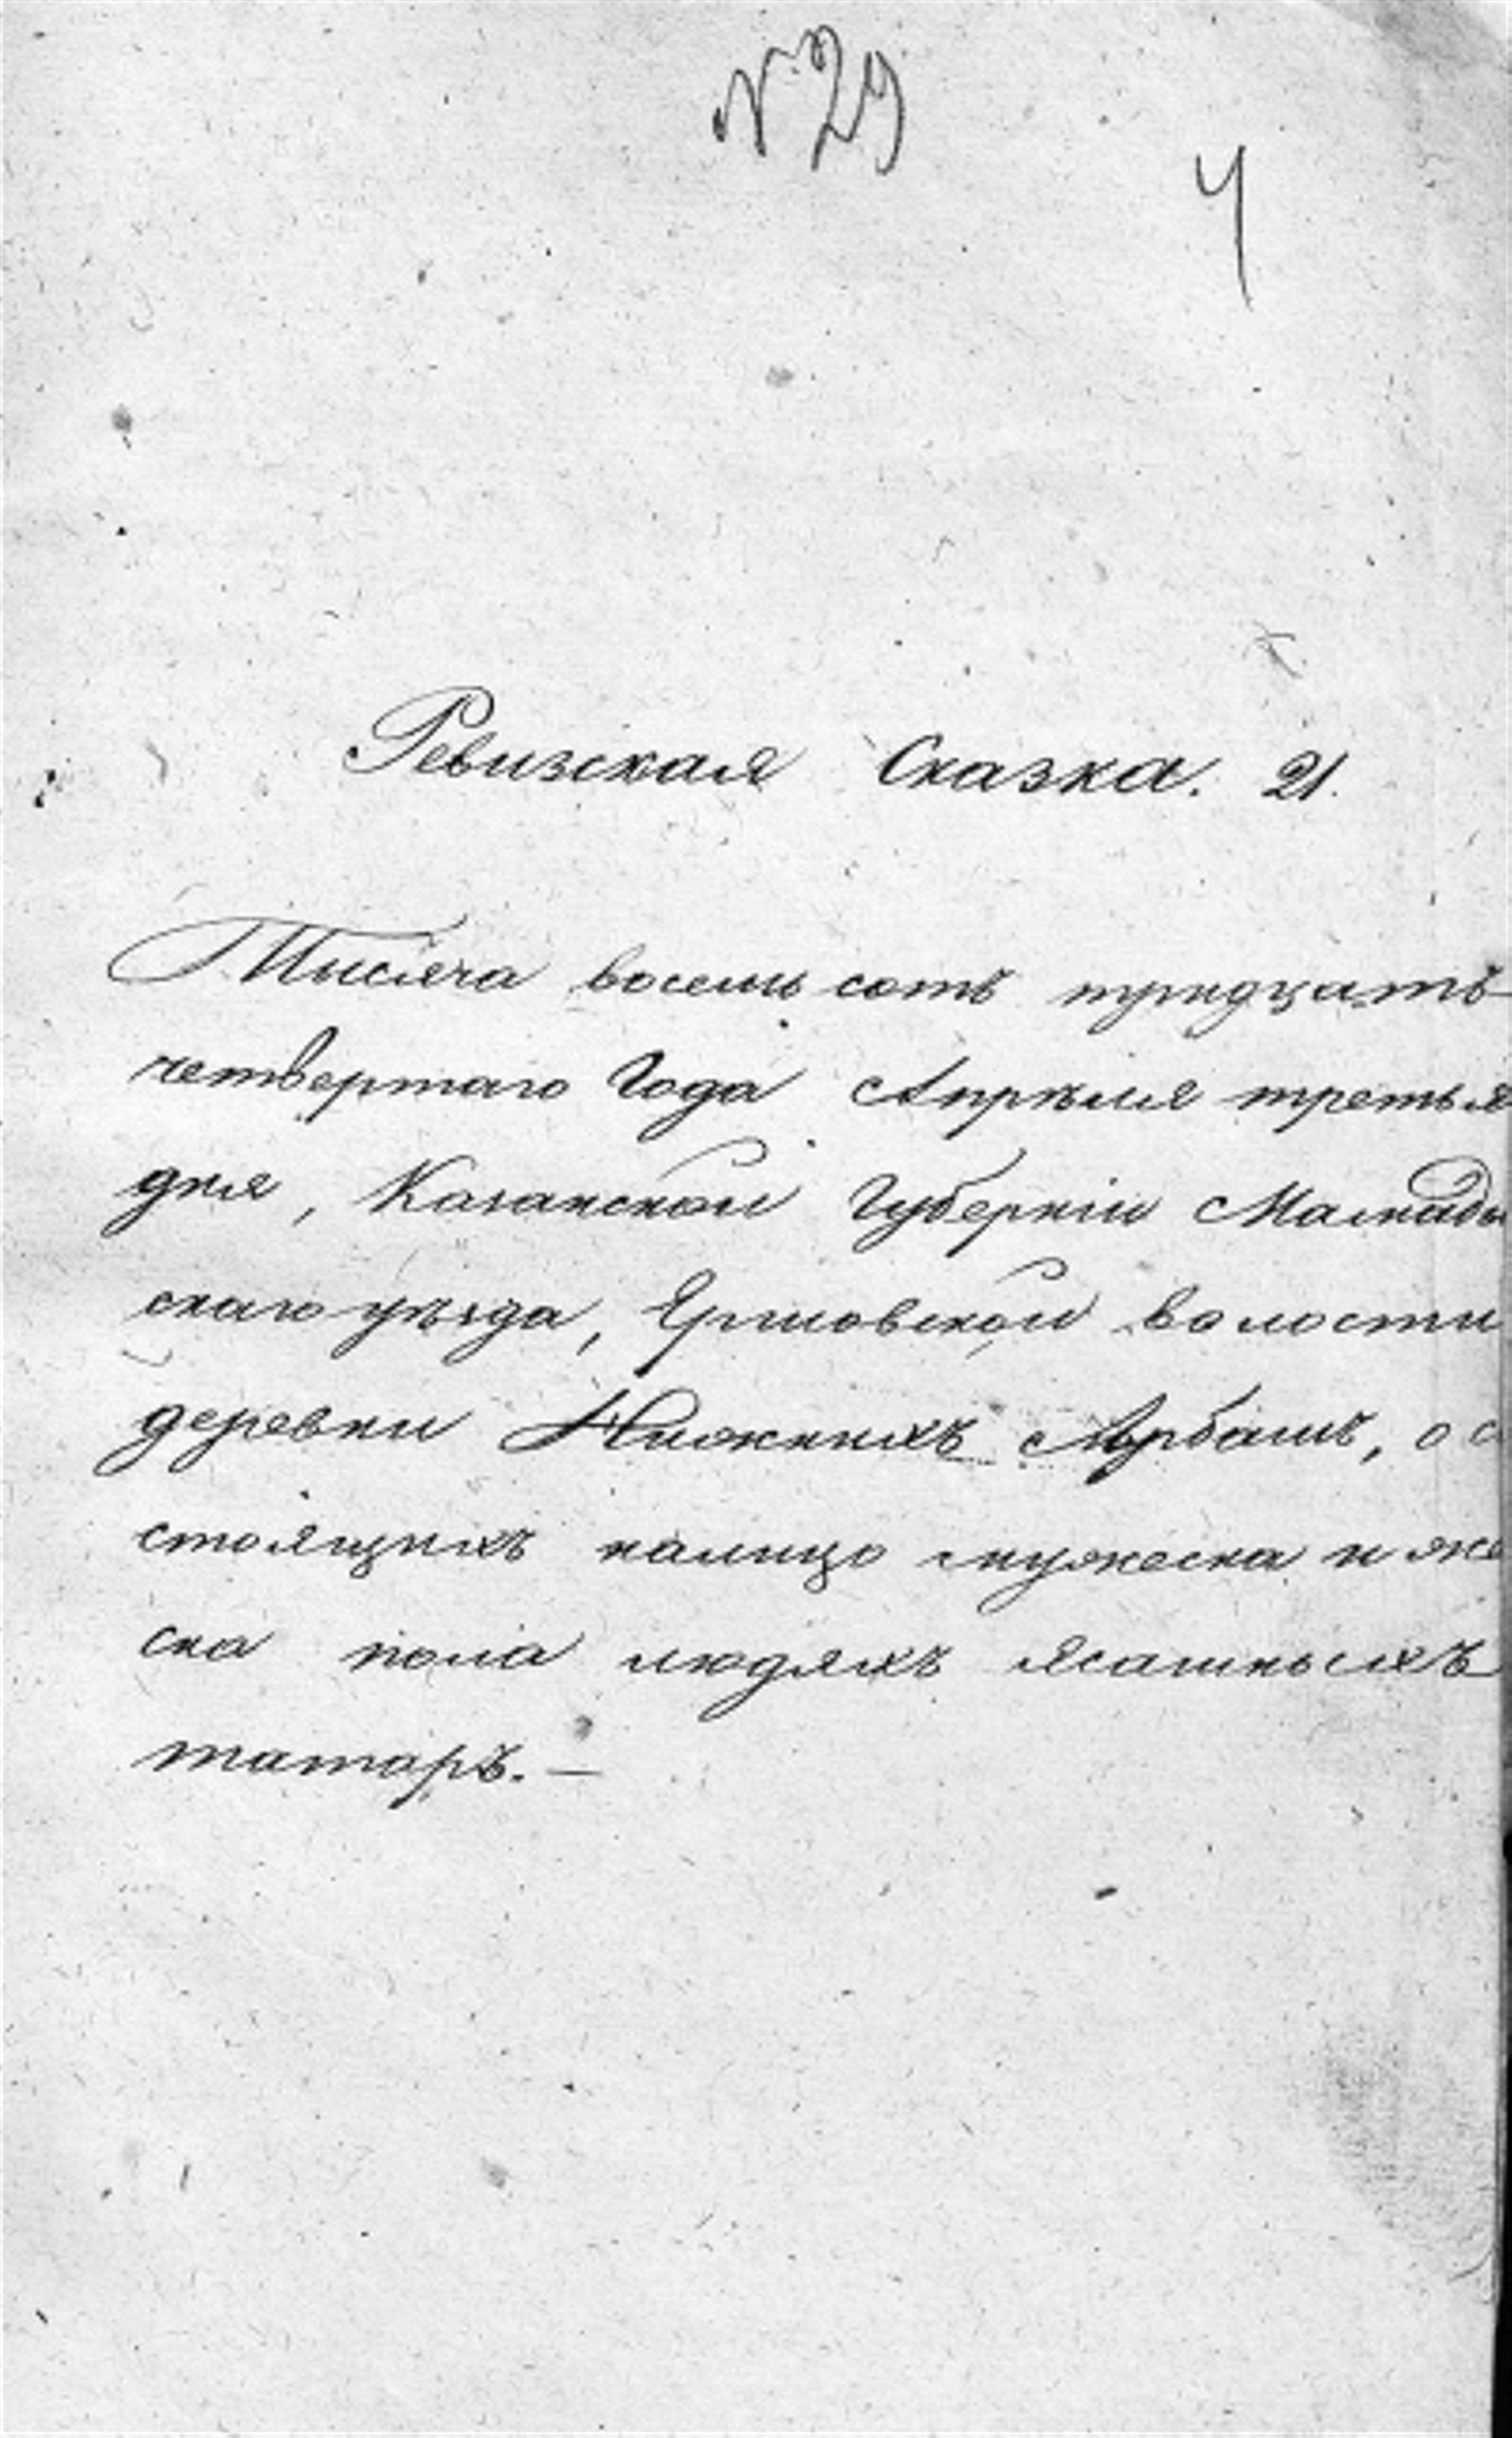 № 29
4
Ревизская Сказка. 21.
Тысяча восемь сотъ тридцать
четвертаго Года Апрѣля третья
дня, Казанской Губерніи Мамады
скаго уѣзда, Ершовской волости
деревни Нижнихъ Арбашъ, о со
стоящихъ налицо мужеска и же
ска пола людяхъ ясашныхъ
татаръ. —